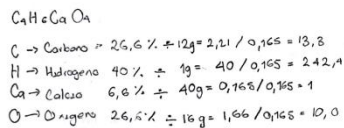 C4H6CaO4
C → Carbono = 26,6 % ÷ 12g = 2,21 / 0,165 = 13,3
H → Hidrogeno 40 % ÷ 1g = 40 / 0,165 = 242,4
Ca → Calcio 6,6 % ÷ 40g = 0,165 / 0,165 = 1
O → Oxigeno 26,6 % ÷ 16g = 1,66 / 0,165 = 10,0